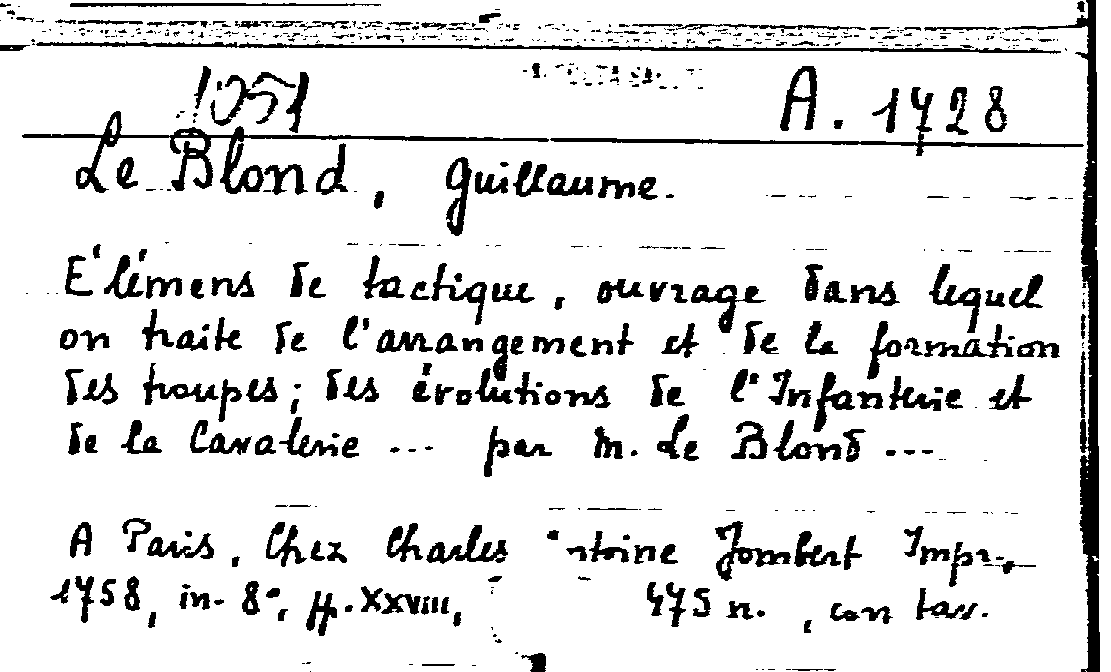 1051 A. 1728
Le Blond, Guillaume.
Élémens de tactique, ouvrage dans lequel
on traite de l'arrangement et de la formation
des troupes; des évolutions de l'Infanterie et
de la Cavalerie ... par M. Le Blond ...
A Paris, Chez Charles ntoine Jombert Impr.,
1758, in-8°, pp. XXVIII, 475 n. , con tav.